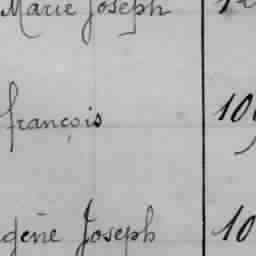 Marie Joseph
françois 10
gène Joseph 10